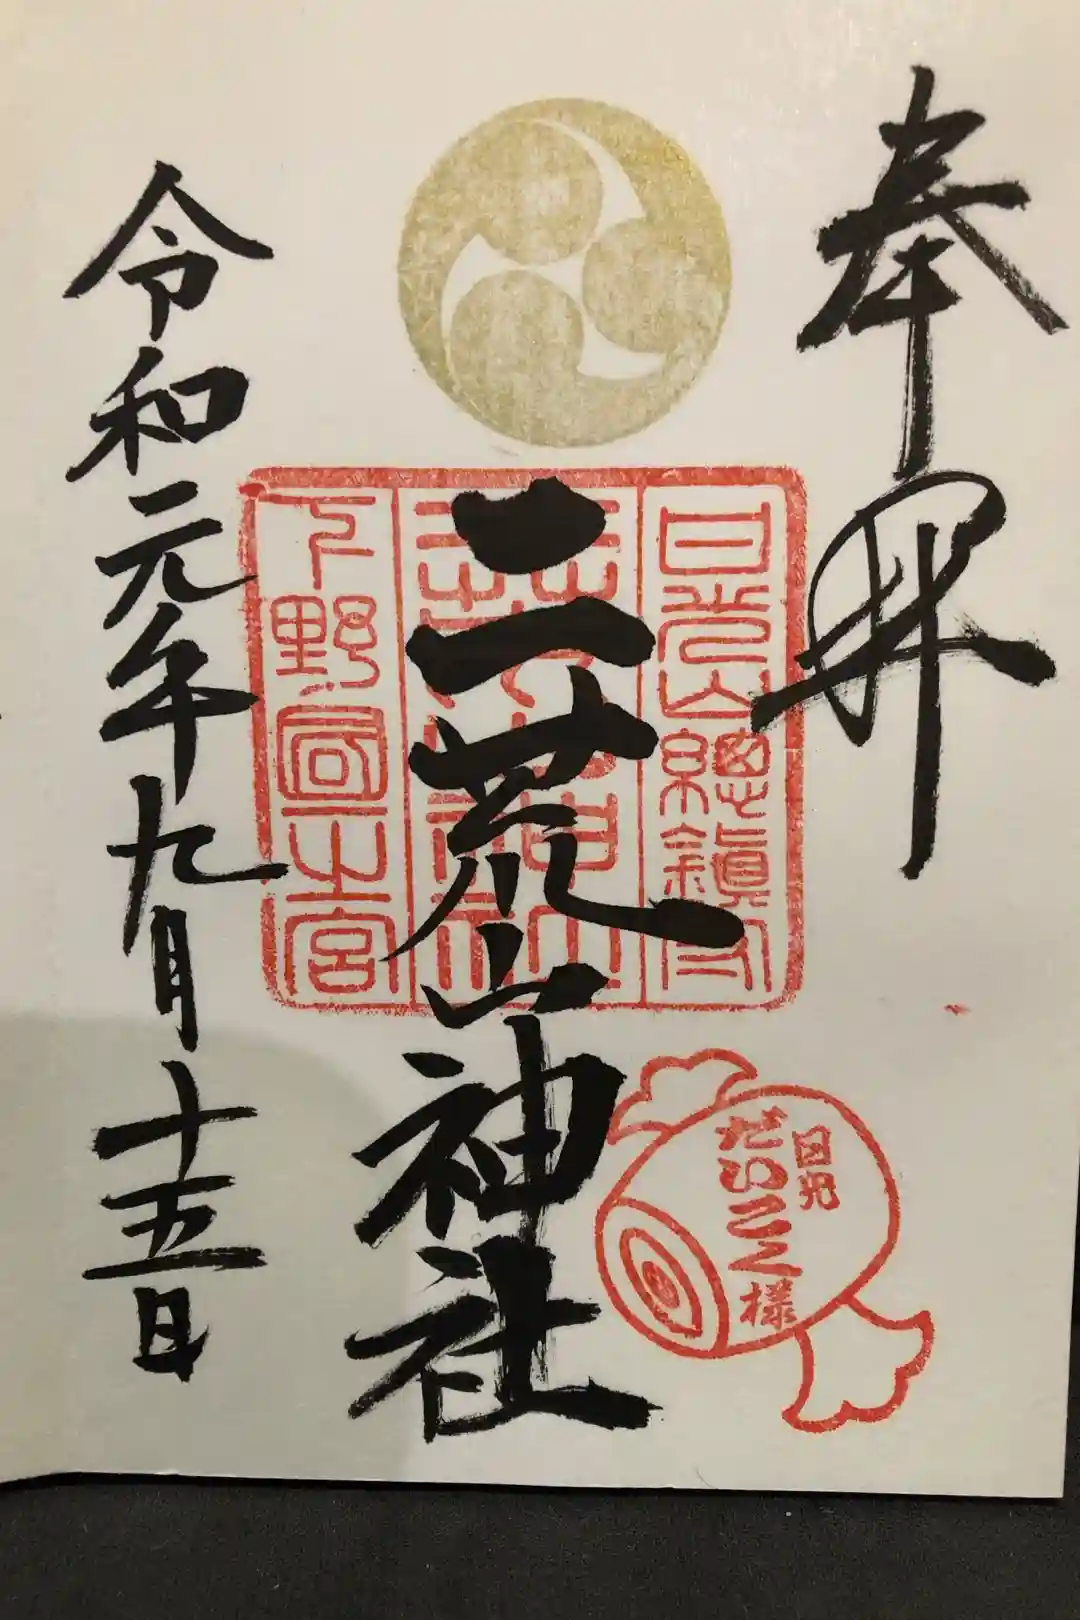 奉拝
日光山總鎮守
二荒山神社
下野國一之宮
令和元年九月十五日
日光
だいこく様